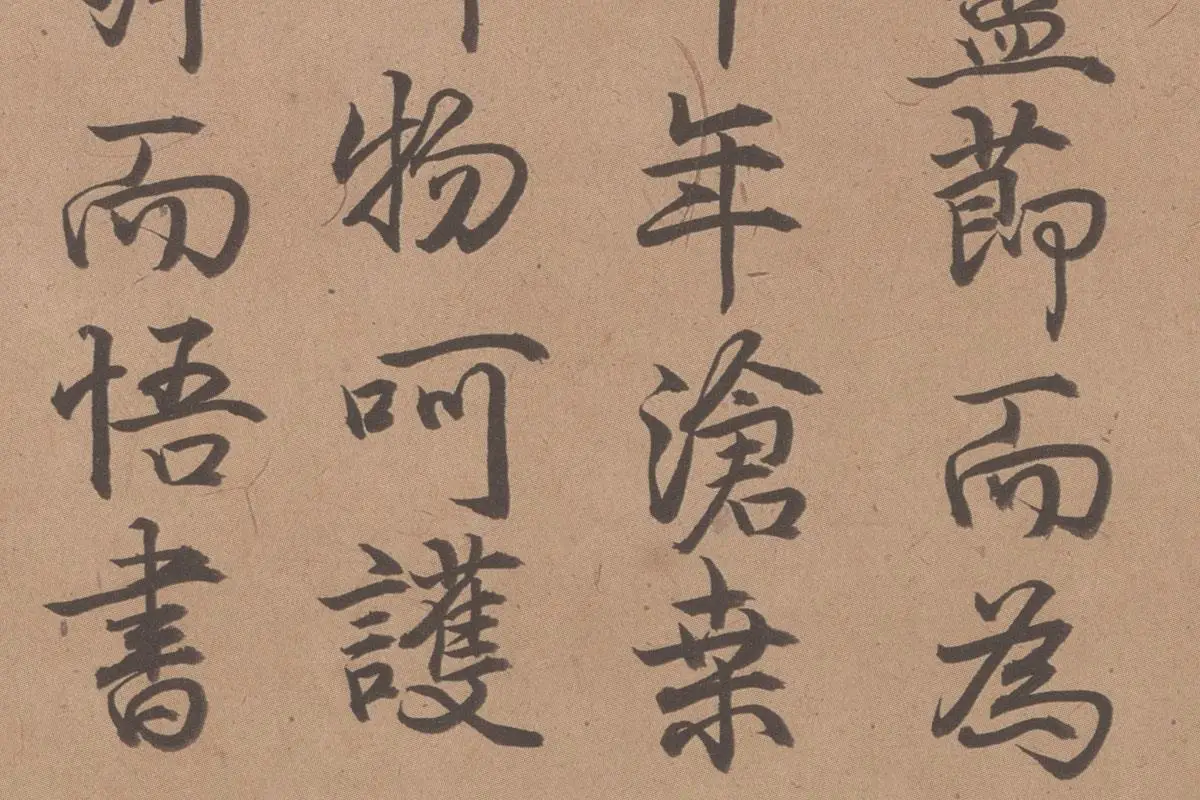 節而為
年滄桒
物呵護
而悟書